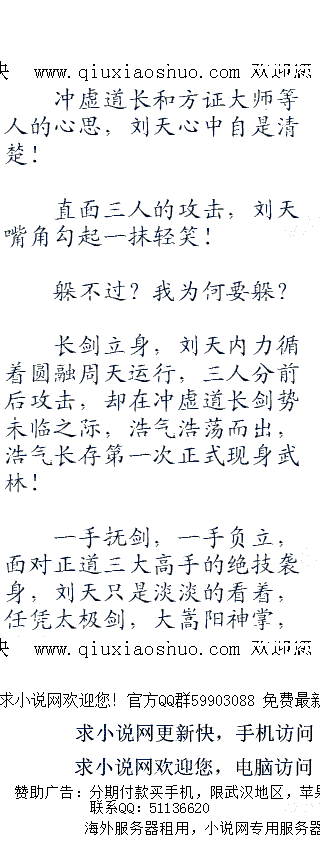 快 www.qiuxiaoshuo.com 欢迎您
冲虚道长和方证大师等
人的心思，刘天心中自是清
楚！
直面三人的攻击，刘天
嘴角勾起一抹轻笑！
躲不过？我为何要躲？
长剑立身，刘天内力循
着圆融周天运行，三人分前
后攻击，却在冲虚道长剑势
未临之际，浩气浩荡而出，
浩气长存第一次正式现身武
林！
一手抚剑，一手负立，
面对正道三大高手的绝技袭
身，刘天只是淡淡的看着，
任凭太极剑，大嵩阳神掌，
快 www.qiuxiaoshuo.com 欢迎您
求小说网欢迎您！官方QQ群59903088 免费最新
求小说网更新快，手机访问
求小说网欢迎您，电脑访问
赞助广告：分期付款买手机，限武汉地区，苹果
联系QQ：51136620
海外服务器租用，小说网专用服务器